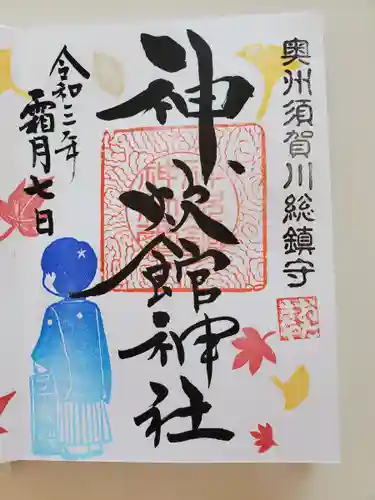 奥州須賀川総鎮守
神炊館神社
令和三年
霜月七日